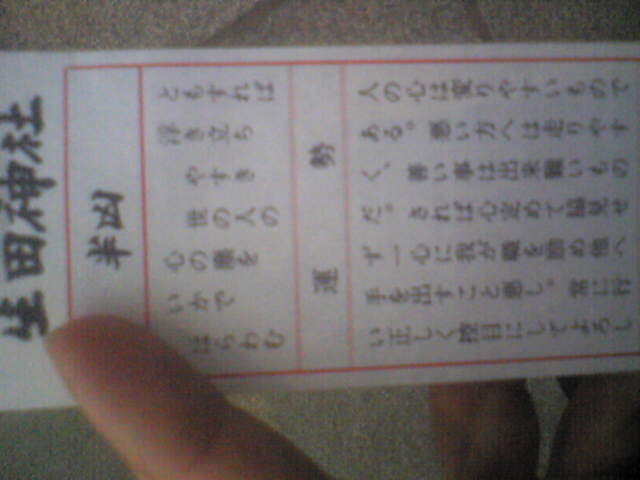 生田神社
半凶
ともすれば
浮き立ち
やすき
世の人の
心の塵を
いかで
はらわむ
運勢
人の心は変りやすいもので
ある。悪い方へは走りやす
く、善い事は出来難いもの
だ。されば心定めて脇見せ
ず一心に我が職を固め他へ
手を出すこと悪し。常に行
い正しく控目にしてよろし